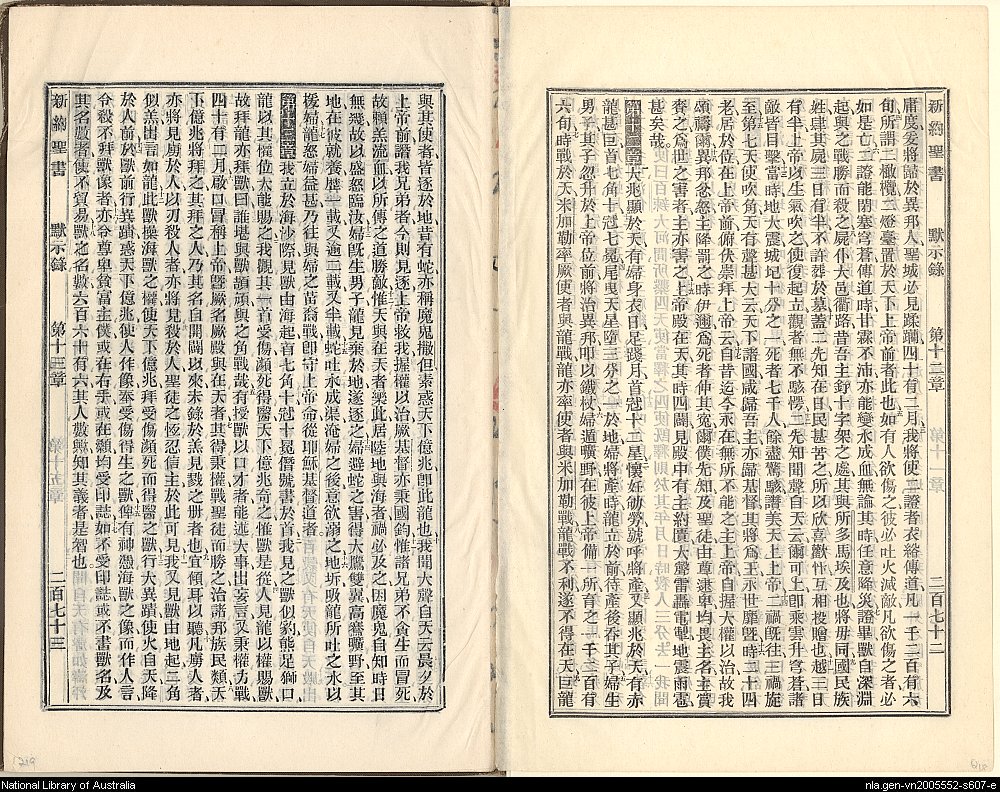 新約聖書 默示錄 第十二章 二百七十二
庸度之蓋將歸於異邦人聖城必見蹂躪四十有二月我將使二證者衣綌傳道凡一千二百有六
旬所謂二橄欖二燈臺置於天下上帝前者此也如有人欲傷之彼必吐火滅敵凡欲傷之者必
如是亡二證能閉塞穹蒼傳道時甘霖不沛亦能變水成血無論其時任意降災證畢獸自深淵
起與之戰勝而殺之屍仆大邑衢路昔吾主釘十字架之處其與所多馬埃及也將毋同國民族
姓肆其屍三日有半不許葬於墓蓋二先知在日民甚苦之所以欣喜歡忭互相投贈也越三日
有半上帝以生氣吹之使復起立觀者無不駭愕二先知聞聲自天云爾可上卽乘雲升穹蒼諸
敵皆目擊當時地大震城圮十分之一死者七千人餘盡驚駭讚美天上上帝二禍旣往三禍旋
至第七天使吹角天有聲甚大云天下諸國咸歸吾主亦歸基督其將爲王永世靡曁時二十四
老居於位在上帝前俯伏崇拜上帝云自昔迄今永在無所不能之主上帝自握大權以治故我
頌禱爾異邦忿怒主降罰之時伊邇爲死者伸其寃爾僕先知及聖徒由尊逮卑均畏主名主賞
賚之爲世之害者主亦害之上帝殿在天其時四闢見殿中有主約匱大聲雷轟電閃地震雨雹
甚矣哉
第十二章 大兆顯於天有婦身衣日足踐月首冠十二星懷妊劬勞號呼將產又顯兆於天有赤
龍甚巨首七角十冠七冕尾曳天星墮三分之一於地婦將產時龍立於前待產後呑其子婦生
男子其子忽升於上帝位前將治異邦叩以鐵杖婦遁曠野在彼上帝備一所育之一千二百有
六旬時戰於天米加勒率厥使者與龍戰龍亦率使者與米加勒戰龍戰不利遂不得在天巨龍
新約聖書 默示錄 第十三章 二百七十三
與其使者皆逐於地昔有蛇亦稱魔鬼撒但素惑天下億兆卽此龍也我聞大聲自天云晨夕於
上帝前譖我兄弟者今則見逐上帝救我握權以治厥基督亦秉國鈞惟諸兄弟不貪生而冒死
故賴羔流血以所傳之道勝敵惟天與在天者樂此居陸地與海者禍必及之因魔鬼自知時日
無幾故以盛怒臨汝婦旣生男子龍見棄於地遂逐之婦避蛇之害得大鷹雙翼高騫曠野至其
地在彼就養歷一載又逾二載又半載蛇吐水成渠淹婦之後意欲溺之地坼吸龍所吐之水以
援婦龍怒婦益甚乃往與婦之苗裔戰卽守上帝命從耶穌基督道者
第十三章 我立於海沙際見獸由海起首七角十冠十冕僭號書於首我見之獸似豹熊足獅口
龍以其權位大能賜之我觀其一首受傷瀕死得醫天下億兆奇之惟獸是從人見龍以權賜獸
故拜龍亦拜獸曰誰堪與獸頡頏與之角戰哉有授獸以口才者能述大事出妄言又秉權力戰
四十有二月啟口冒稱上帝曁厥名厥殿與在天者其得秉權戰聖徒而勝之治諸邦族民類天
下億兆將拜之其拜之人乃其名自開闢以來未錄於羔見戮之册者也宜傾耳以聽凡虜人者
亦將見虜於人以刃殺人者亦將見殺於人聖徒之忍信主於此可見我又見獸由地起二角
似羔出言如龍此獸操海獸之權使天下億兆拜受傷瀕死而得醫之獸行大異蹟使火自天降
於人前於獸前行異蹟惑天下億兆使人作像奉受傷得生之獸俾有神憑海獸之像而作人言
令殺不拜獸像者亦令尊卑貧富主僕或在右手或在顙均受印誌如不受印誌或不書獸名及
其名數者使不貿易獸之名數六百六十有六其人數無知其義者是智也
National Library of Australia
nla.gen-vn2005552-s607-e